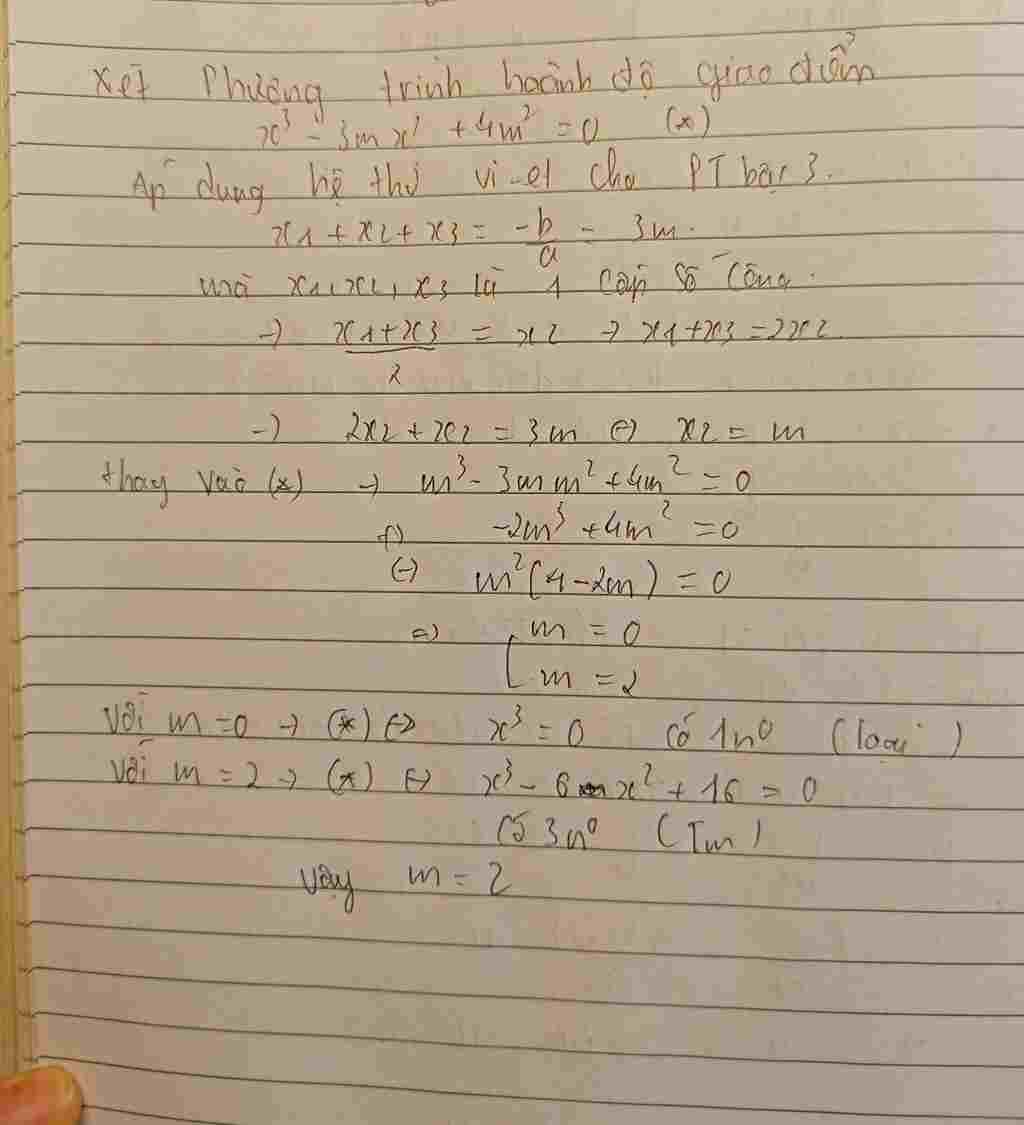 Xét Phương trình hoành độ giao điểm
x³ - 3mx² + 4m² = 0 (*)
Áp dụng hệ thứ vi-et cho PT bậc 3.
x1 + x2 + x3 = -b/a = 3m.
mà x1, x2, x3 là 1 cấp số cộng.
→ (x1+x3)/2 = x2 → x1+x3 = 2x2
→ 2x2 + x2 = 3m ⇔ x2 = m
thay vào (*) → m³ - 3m m² + 4m² = 0
⇔ -2m³ + 4m² = 0
⇔ m²(4 - 2m) = 0
⇔ [ m = 0
m = 2
với m = 0 → (*) ⇔ x³ = 0 có 1n⁰ (loại)
với m = 2 → (*) ⇔ x³ - 6x² + 16 = 0
có 3n⁰ (Tm)
Vậy m = 2